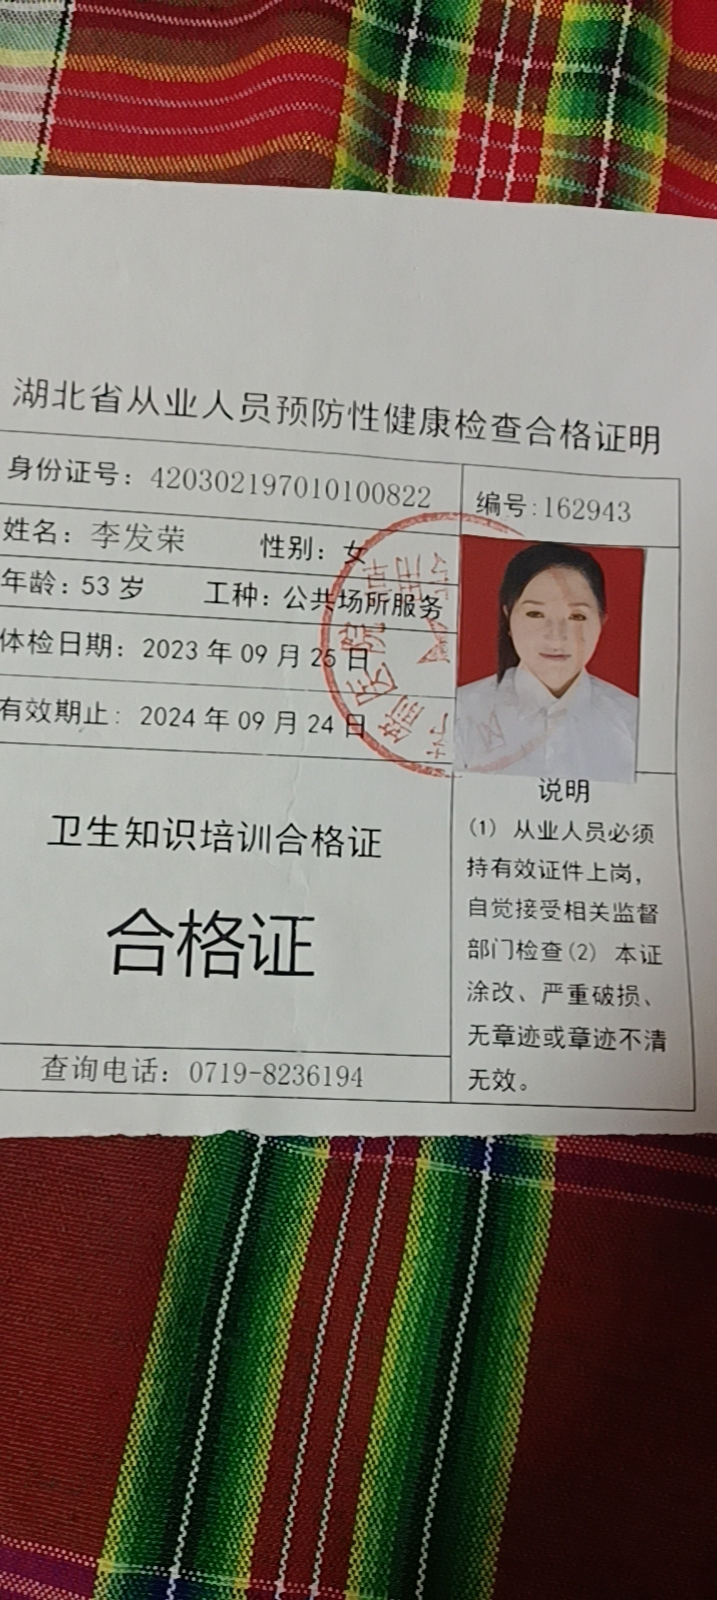 湖北省从业人员预防性健康检查合格证明
身份证号：420302197010100822
编号:162943
姓名：李发荣 性别：女
年龄：53 岁 工种：公共场所服务
体检日期：2023 年 09 月 25 日
有效期止：2024 年 09 月 24 日
卫生知识培训合格证
合格证
查询电话：0719-8236194
说明
(1) 从业人员必须
持有效证件上岗，
自觉接受相关监督
部门检查(2) 本证
涂改、严重破损、
无章迹或章迹不清
无效。